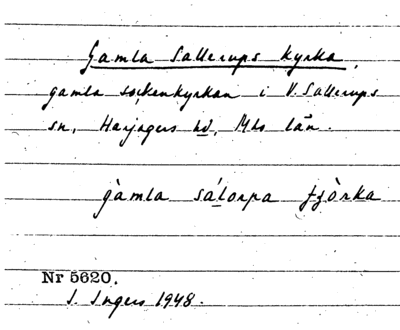 Gamla Sallerups kyrka.
gamla sockenkyrkan i V. Sallerups
sn, Harjagers hd, Mhs län.
gàmla sálorpa tjòrka
Nr 5620.
I. Ingers 1948.